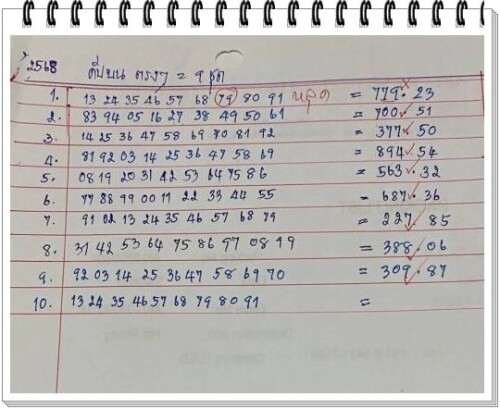 2568 ตีบน ตรงๆ = 9 ชุด
1. 13 24 35 46 57 68 79 80 91 หลุด = 779 × 23
2. 83 94 05 16 27 38 49 50 61 = 700 ✓ 51
3. 14 25 36 47 58 69 70 81 92 = 377 ✓ 50
4. 81 92 03 14 25 36 47 58 69 = 894 ✓ 54
5. 08 19 20 31 42 53 64 75 86 = 563 ✓ 32
6. 77 88 99 00 11 22 33 44 55 = 687 ✓ 36
7. 91 02 13 24 35 46 57 68 79 = 227 ✓ 85
8. 31 42 53 64 75 86 97 08 19 = 388 ✓ 06
9. 92 03 14 25 36 47 58 69 70 = 309 ✓ 87
10. 13 24 35 46 57 68 79 80 91 =